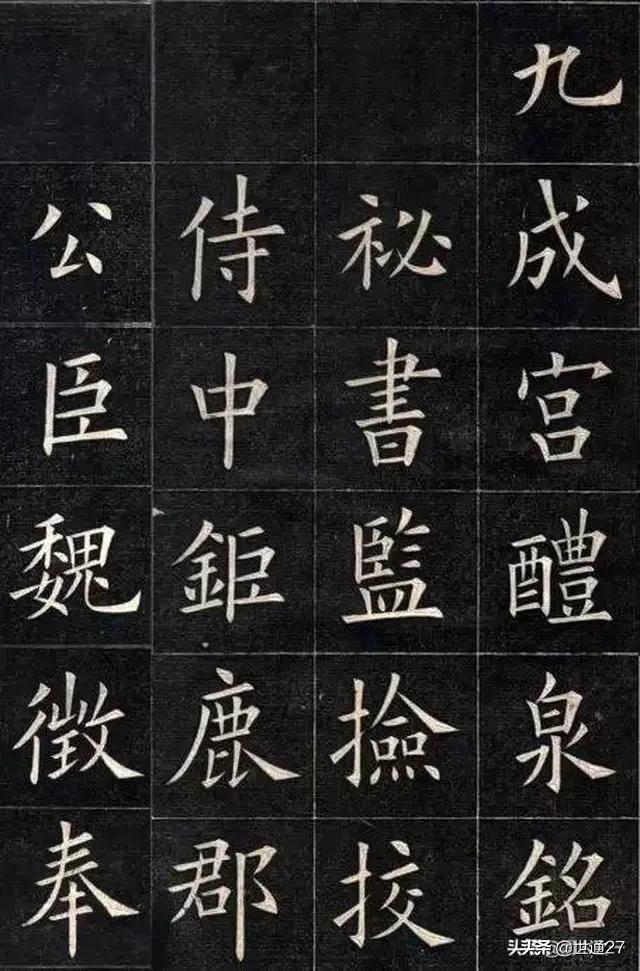 九成宮醴泉銘
祕書監撿挍
侍中鉅鹿郡
公臣魏徵奉
头条 @世通27